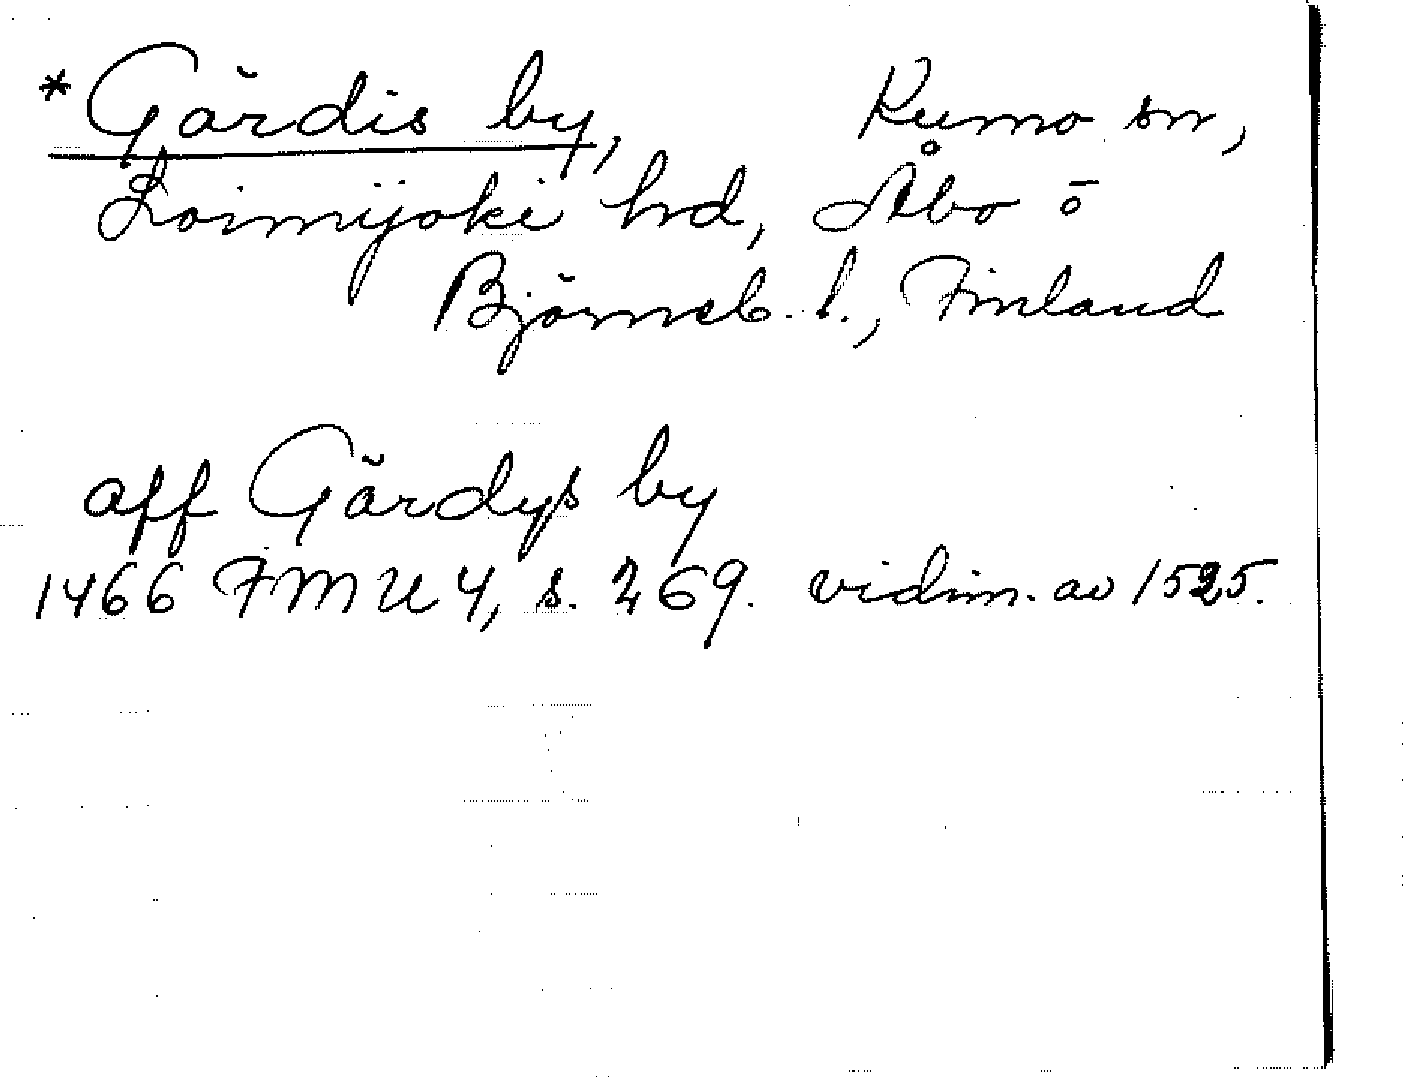 * Gärdis by, Kumo sn,
Loimijoki hd, Åbo ö
Björneb. l., Finland
aff Gärdys by
1466 FMU 4, s. 269. vidim. av 1525.